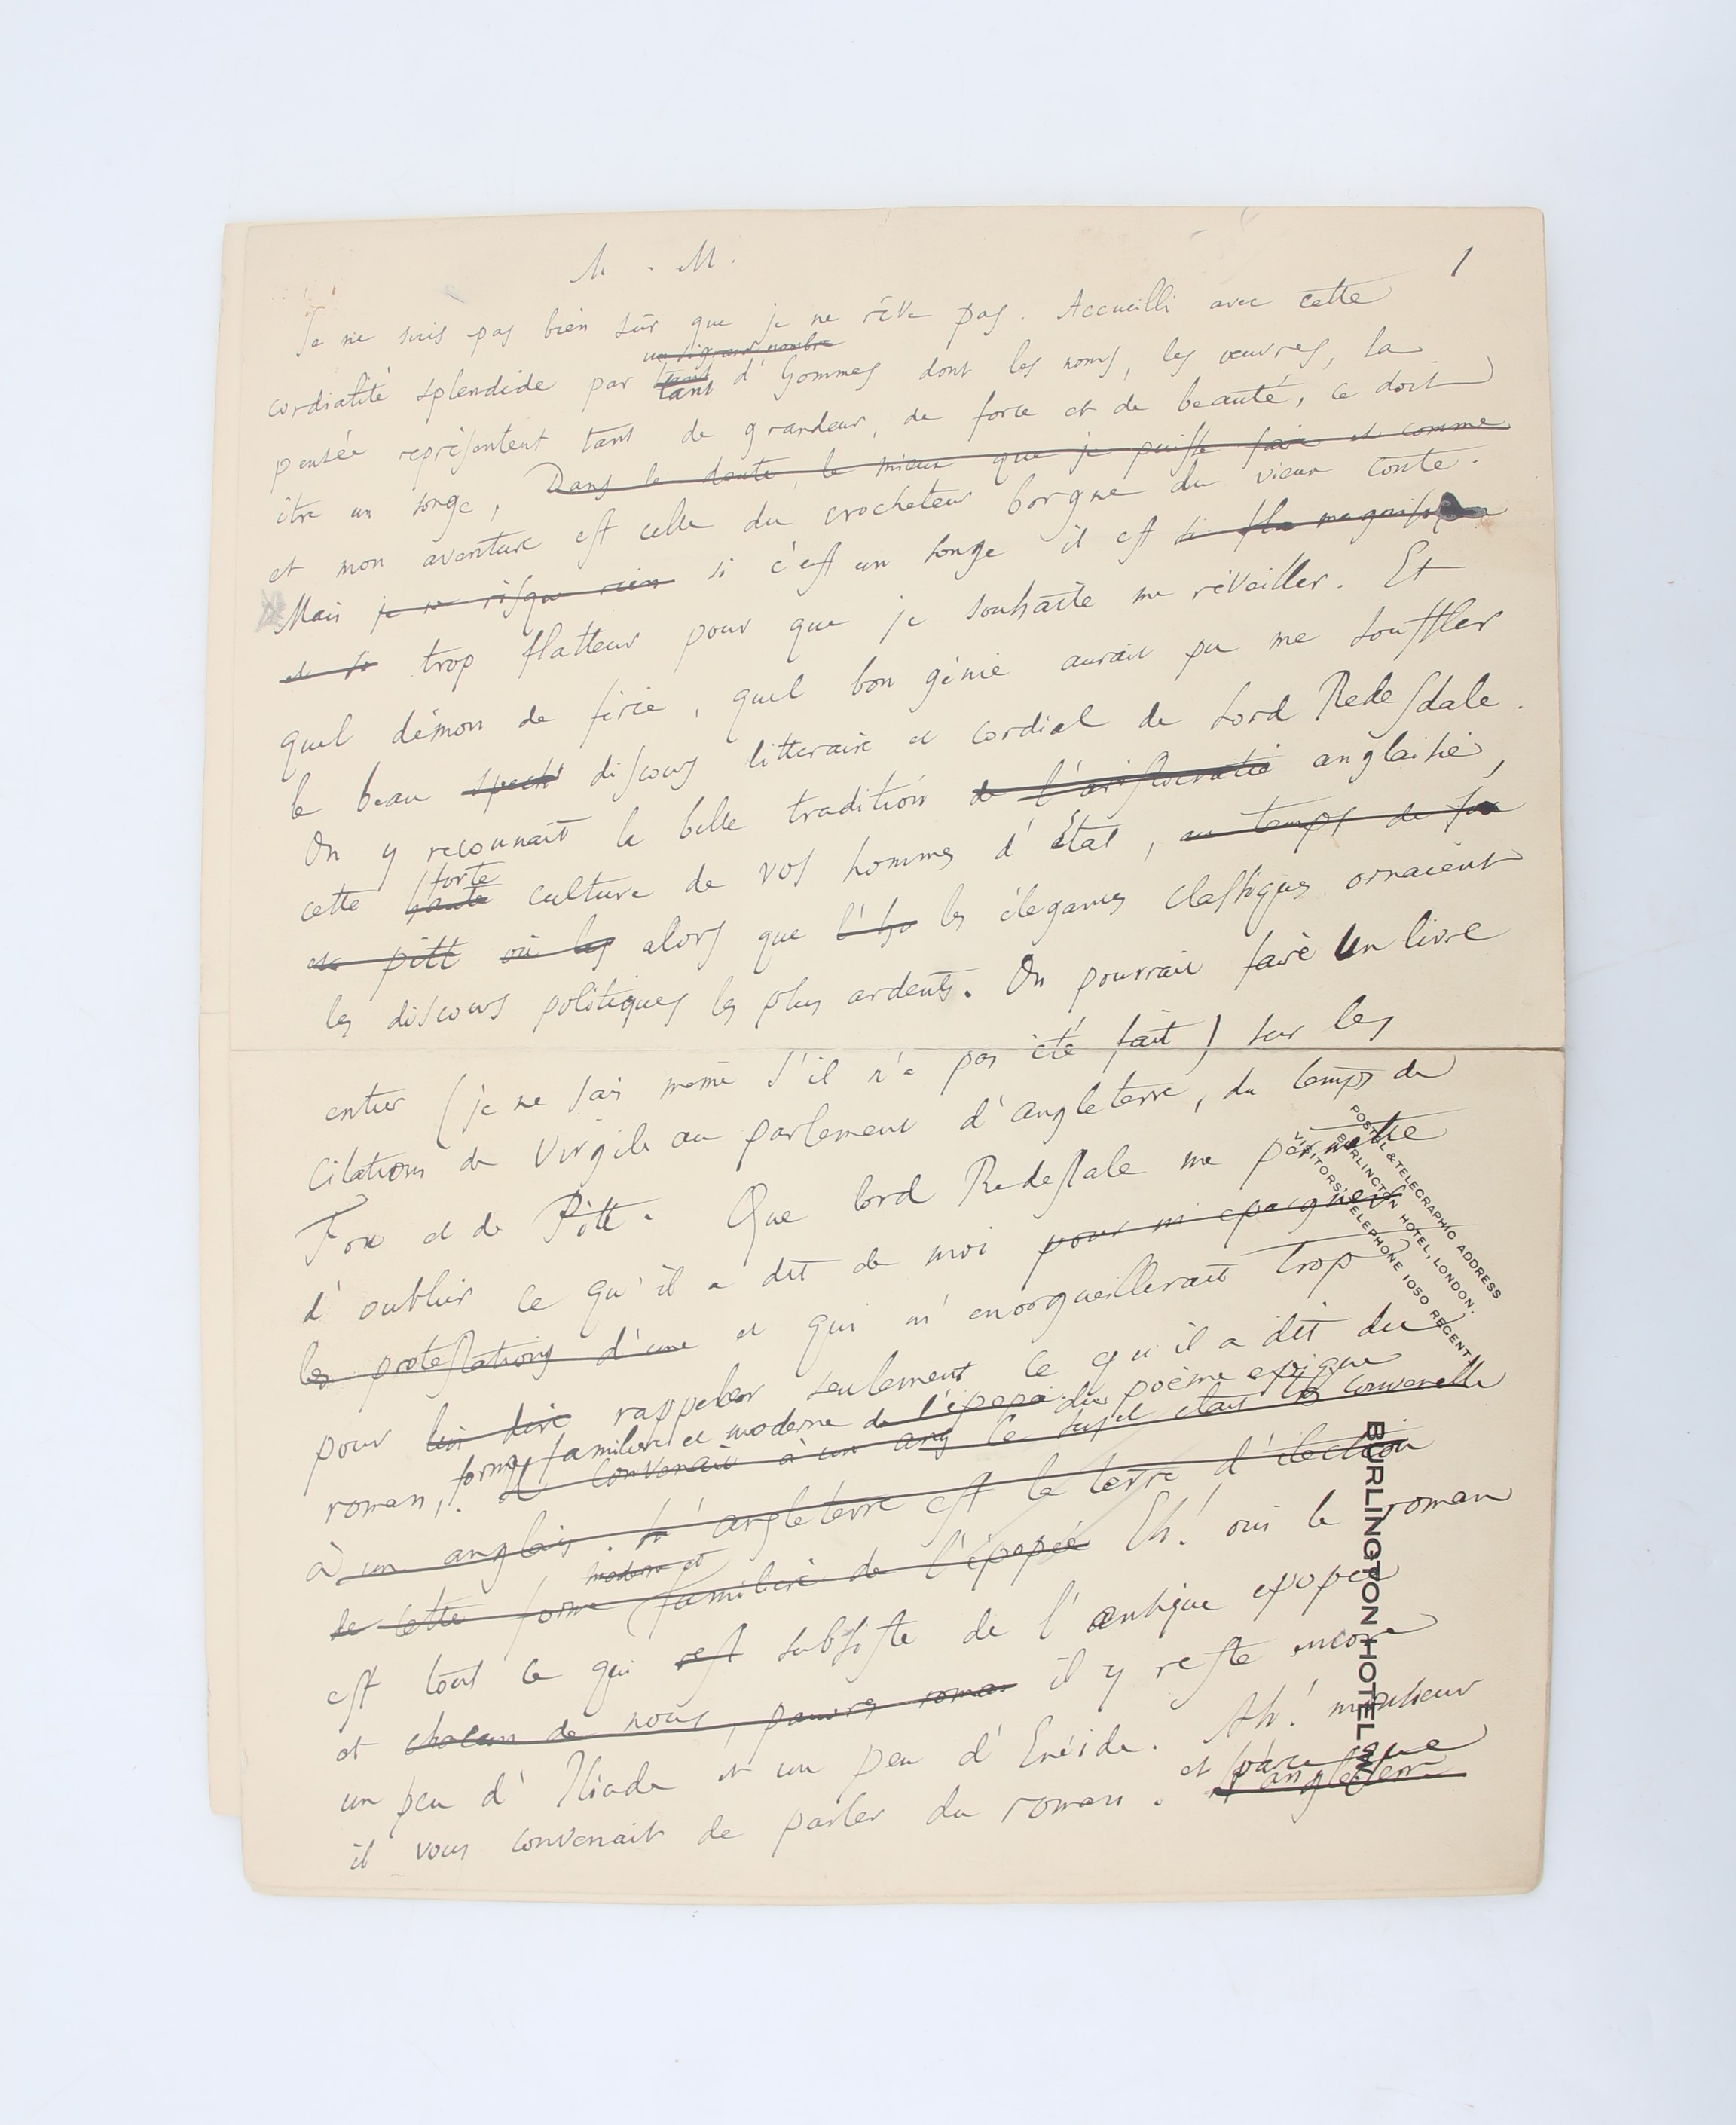 M. M.
1
Je ne suis pas bien sûr que je ne rêve pas. Accueilli avec cette
un si grand nombre
cordialité splendide par tant d'hommes dont les noms, les œuvres, la
pensée représentent tant de grandeur, de force et de beauté, ce doit
être un songe, Dans le doute, le mieux que je puisse faire est comme
et mon aventure est celle du crocheteur borgne du vieux conte.
Mais je ne risque rien si c'est un songe il est si
et si trop flatteur pour que je souhaite me réveiller. Et
quel démon de féerie, quel bon génie aurait pu me souffler
le beau speech discours litteraire et cordial de Lord Redesdale.
On y reconnait la belle tradition de l'aristocratie anglaise,
forte
cette haute culture de vos hommes d'Etat, au temps de Fox
et Pitt où les alors que les élégances classiques ornaient
les discours politiques les plus ardents. On pourrait faire un livre
entier (je ne sais même s'il n'a pas été fait) sur les
citations de Virgile au parlement d'angleterre, du temps de
Fox et de Pitt. Que lord Redesdale me permette
d'oublier ce qu'il a dit de moi pour m'epargner
les protestations d'une et qui m'enorgueillerait trop
pour lui dire rappeler seulement ce qu'il a dit du
forme familiere et moderne de l'épopé du poème epique
roman, Il convenait à un ang le sujet etait
à un anglais. L'angleterre est la terre d'élection
moderne et
de cette forme familière de l'épopée Eh! oui le roman
est tout ce qui rest subsiste de l'antique epopée
et chacun de nous, pauvres roman il y reste encore
un peu d'Iliade et un peu d'Enéide. Ah! monsieur
il vous convenait de parler du roman. et parce que
l'angleterre
POSTAL & TELEGRAPHIC ADDRESS
BURLINGTON HOTEL, LONDON.
VISITORS' TELEPHONE 1050 REGENT
BURLINGTON HOTEL, W.